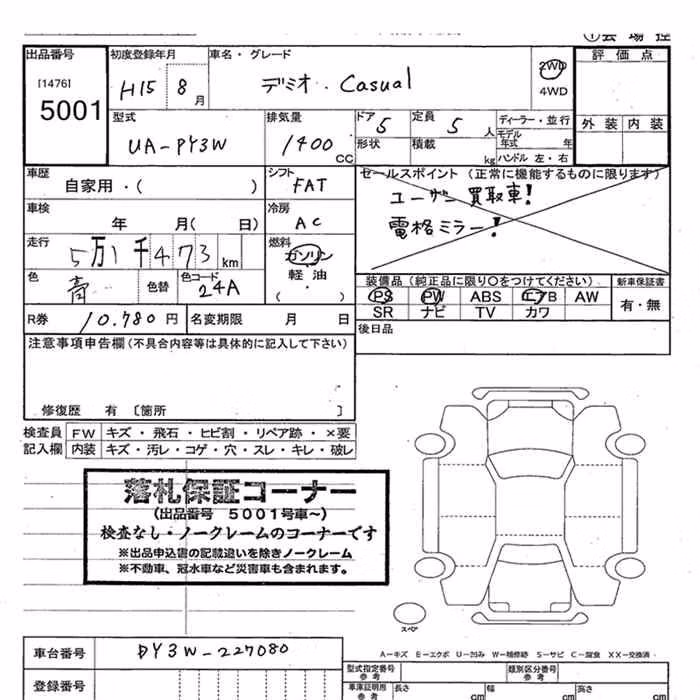 ①会 場 控
出品番号
[1476]
5001
初度登録年月
H15 8月
車名・グレード
デミオ・Casual
2WD
4WD
評 価 点
外 装 内 装
型式
UA-PY3W
排気量
1400 CC
ドア 5
形状
定員 5 人
積載 kg
ディーラー・並 行
モデル年式 年
ハンドル 左・右
車歴
自家用・( )
シフト
FAT
セールスポイント (正常に機能するものに限ります)
ユーザー買取車!
電格ミラー!
車検
年 月( 日)
冷房
AC
走行
5万1千473 km
燃料
ガソリン
軽 油
( )
色
青
色替
色コード
24A
装備品(純正品に限り○をつけてください)
PS PW ABS エアB AW
SR ナビ TV カワ
新車保証書
有・無
R券 10.780 円
名変期限 月 日
後日品
注意事項申告欄(不具合内容等は具体的に記入して下さい)
修復歴 有 〔箇所 〕
検査員 FW キズ・飛石・ヒビ割・リペア跡・×要
記入欄 内装 キズ・汚レ・コゲ・穴・スレ・キレ・破レ
落札保証コーナー
(出品番号 5001号車~)
検査なし・ノークレームのコーナーです
※出品申込書の記載違いを除きノークレーム
※不動車、冠水車など災害車も含まれます。
スペア
A-キズ E-エクボ U-凹み W-補修跡 S-サビ C-腐食 XX-交換済
車台番号 DY3W-227080
登録番号
型式指定番号
参考
類別区分番号
参考
車庫証明用
参考
長さ cm
幅 cm
高さ cm